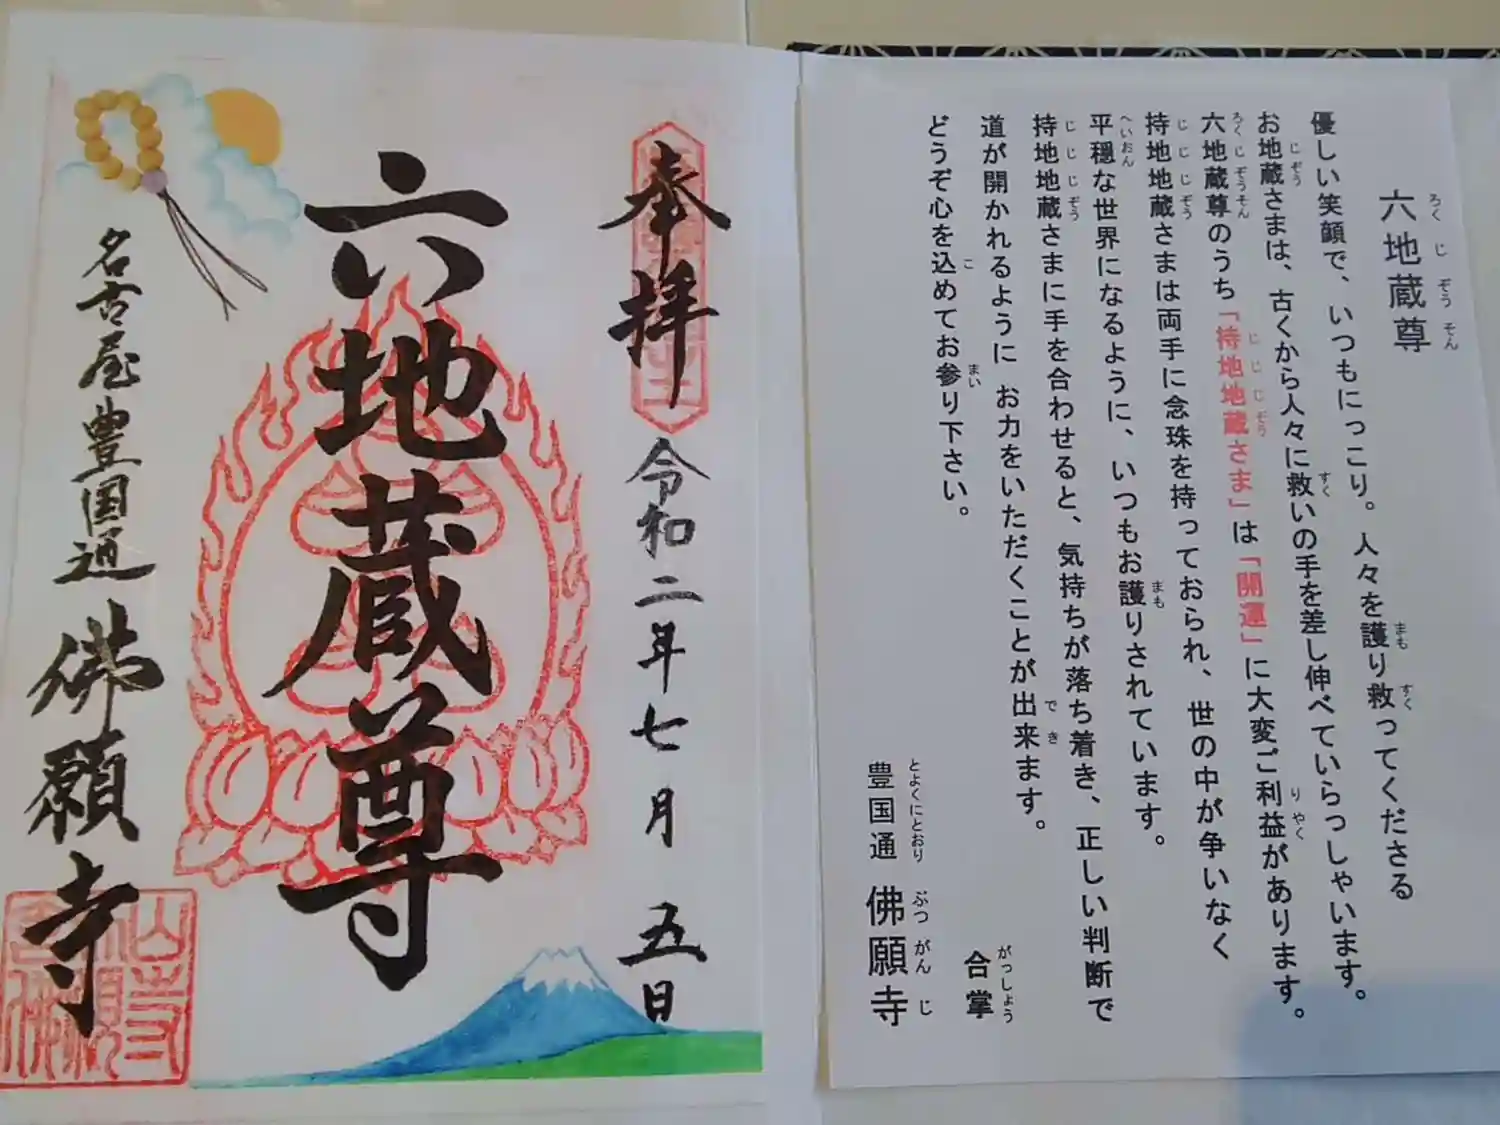 六地蔵尊
優しい笑顔で、いつもにっこり。人々を護り救ってくださる
お地蔵さまは、古くから人々に救いの手を差し伸べていらっしゃいます。
六地蔵尊のうち「持地地蔵さま」は「開運」に大変ご利益があります。
持地地蔵さまは両手に念珠を持っておられ、世の中が争いなく
平穏な世界になるように、いつもお護りされています。
持地地蔵さまに手を合わせると、気持ちが落ち着き、正しい判断で
道が開かれるように お力をいただくことが出来ます。
どうぞ心を込めてお参り下さい。
合掌
豊国通 佛願寺
奉拝 令和二年七月五日
六地蔵尊
名古屋豊国通 佛願寺